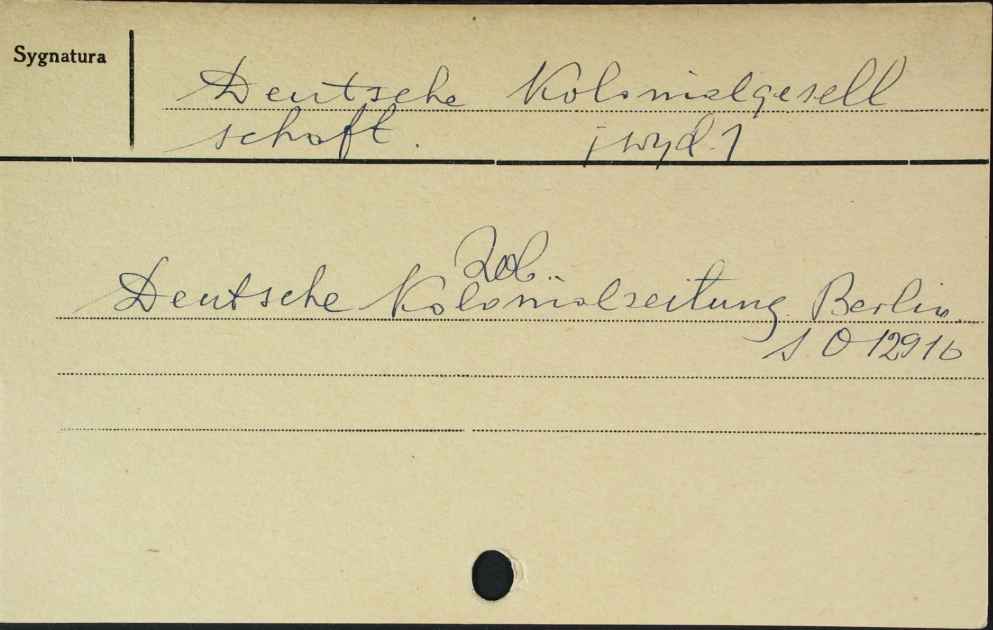 Sygnatura
Deutsche Kolonialgesell
schaft. [wyd.]
Zob.
Deutsche Kolonialzeitung. Berlin.
S O 12916